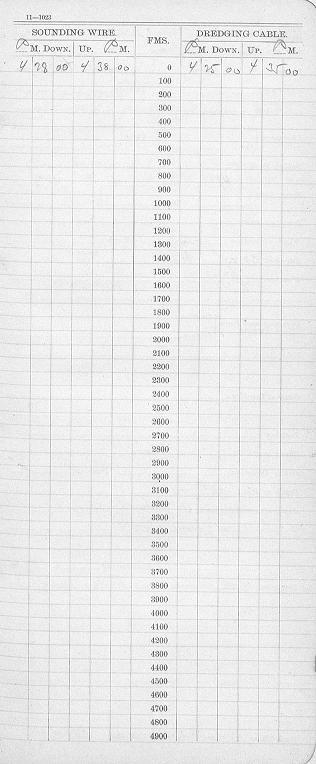 11—1023
SOUNDING WIRE. FMS. DREDGING CABLE.
P M. DOWN. UP. P M. P M. DOWN. UP. P M.
4 28 00 4 38 00 0 4 25 00 4 35 00
100
200
300
400
500
600
700
800
900
1000
1100
1200
1300
1400
1500
1600
1700
1800
1900
2000
2100
2200
2300
2400
2500
2600
2700
2800
2900
3000
3100
3200
3300
3400
3500
3600
3700
3800
3900
4000
4100
4200
4300
4400
4500
4600
4700
4800
4900